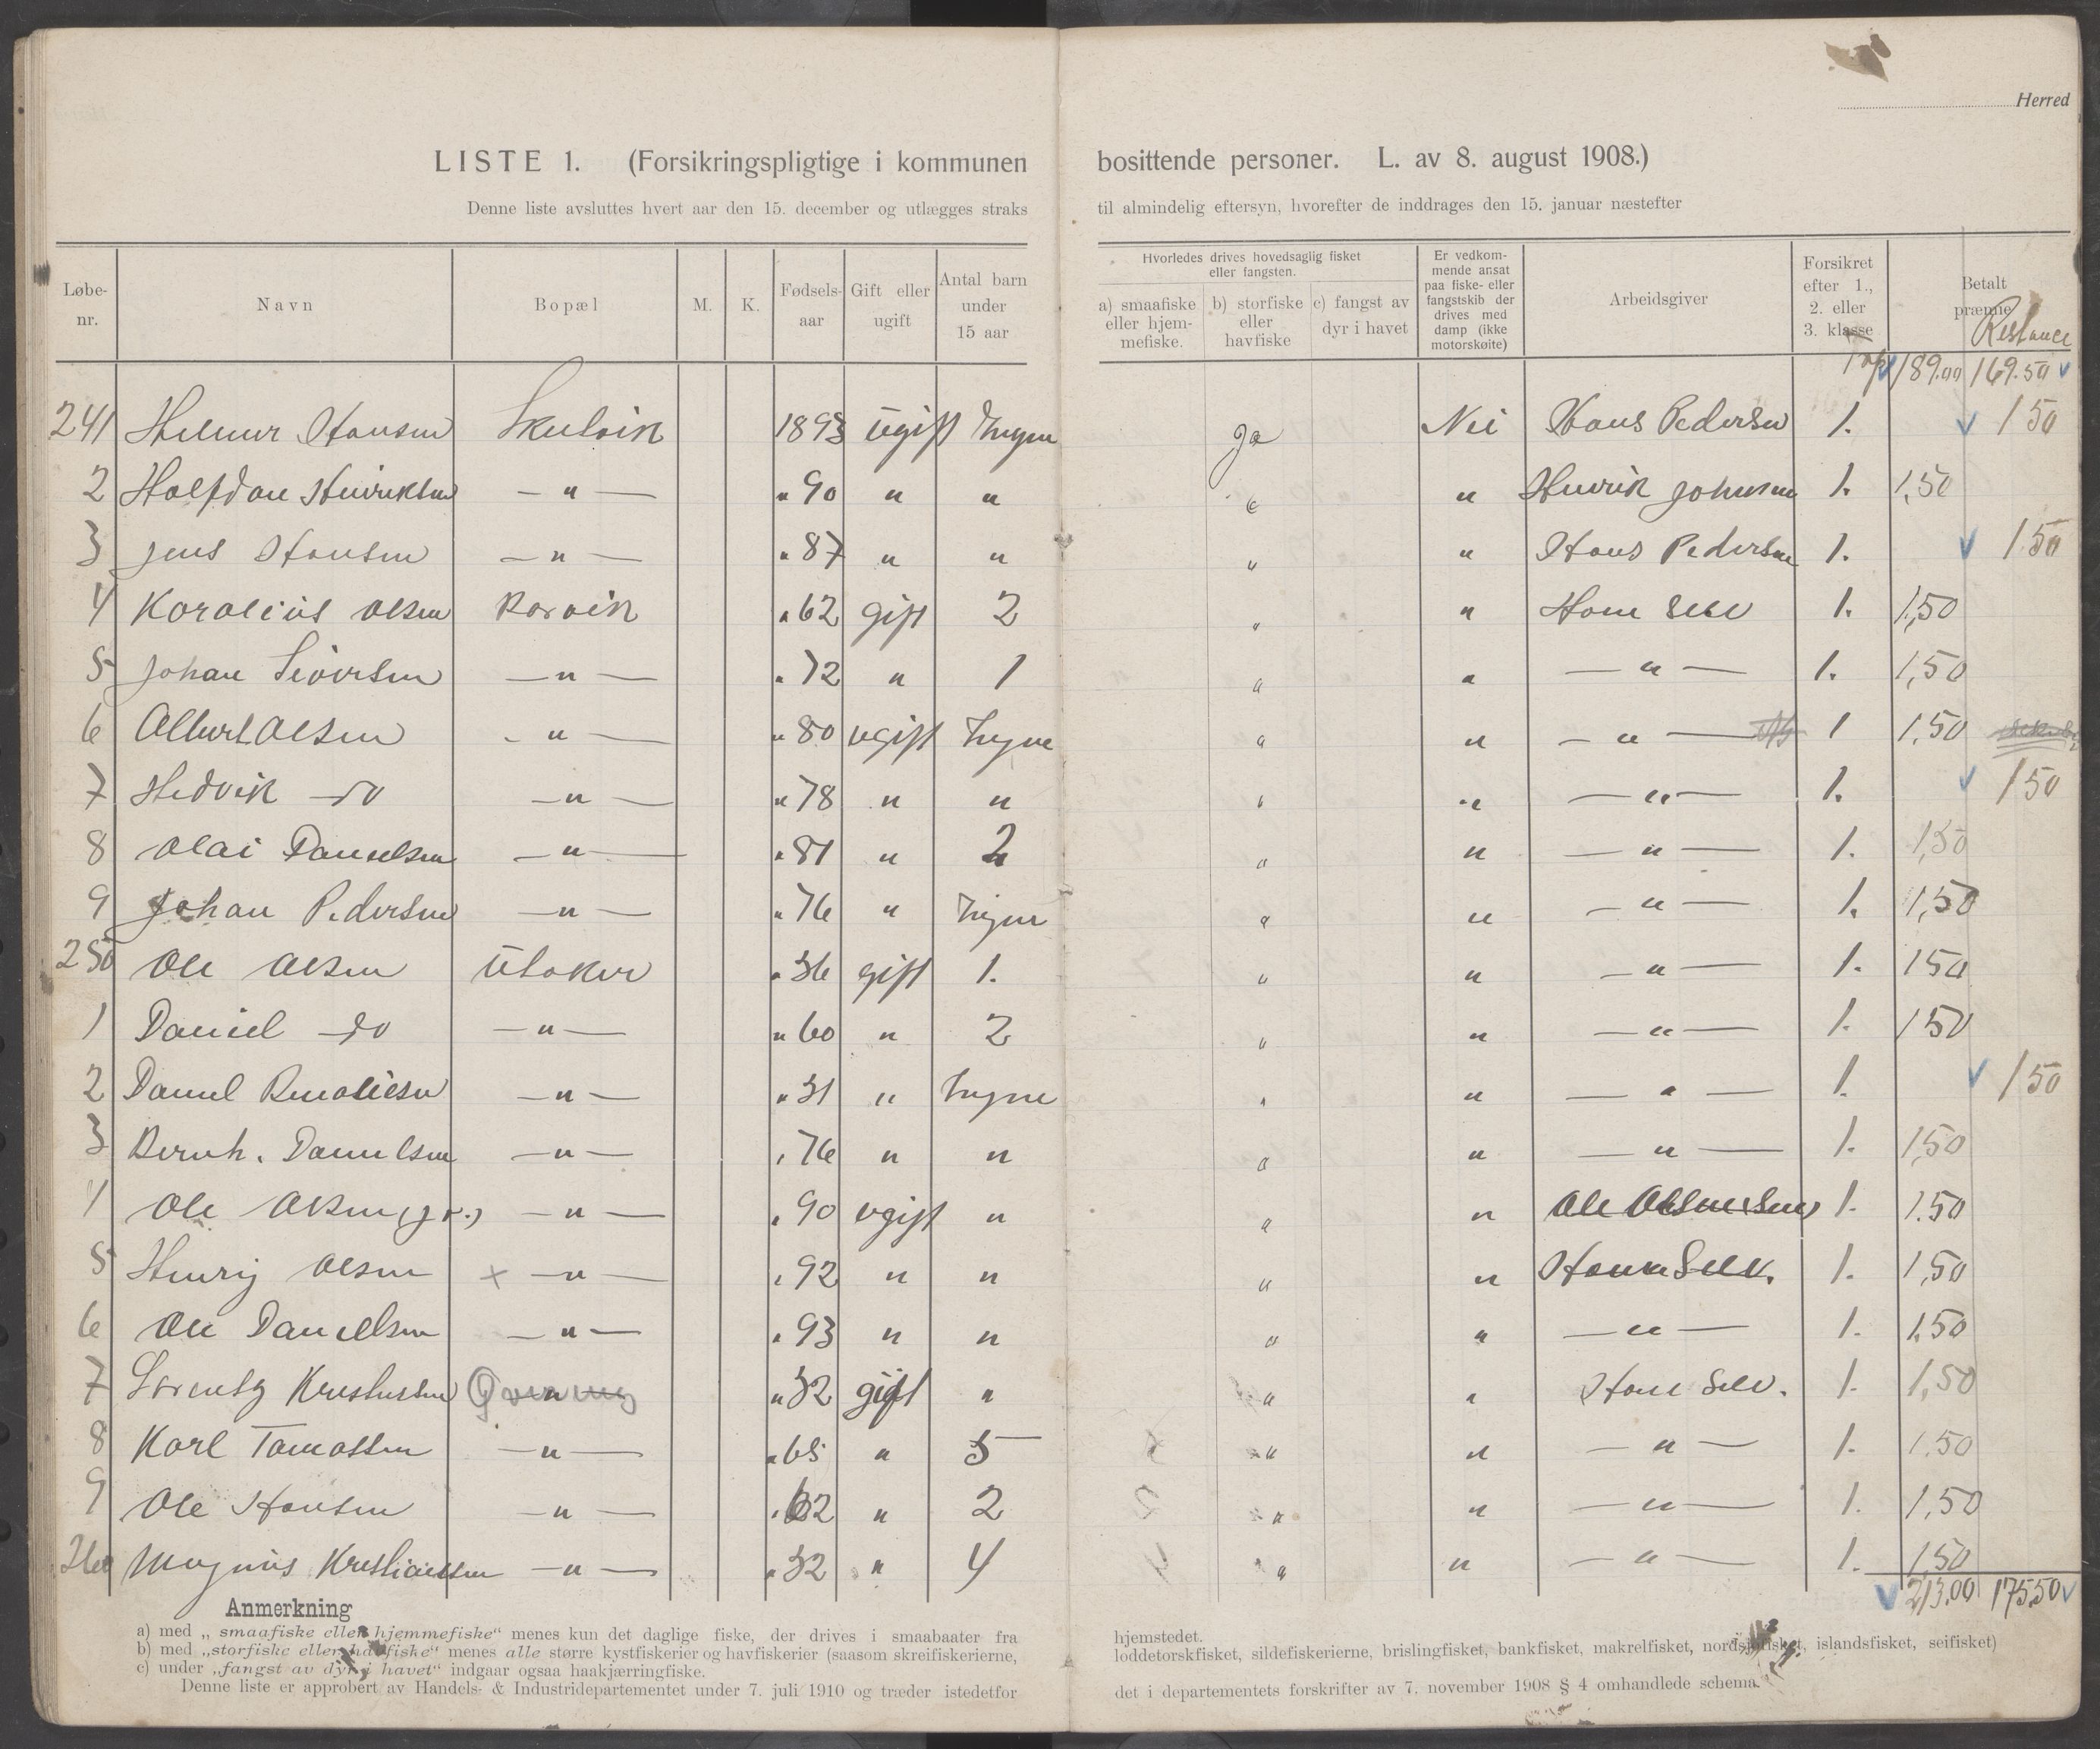 Herred
LISTE 1. (Forsikringspligtige i kommunen bosittende personer. L. av 8. august 1908.)
Denne liste avsluttes hvert aar den 15. december og utlægges straks til almindelig eftersyn, hvorefter de inddrages den 15. januar næstefter
Løbe-nr. Navn Bopæl M. K. Fødsels-aar Gift eller ugift Antal barn under 15 aar Hvorledes drives hovedsaglig fisket eller fangsten. a) smaafiske eller hjemmefiske. b) storfiske eller havfiske c) fangst av dyr i havet Er vedkommende ansat paa fiske- eller fangstskib der drives med damp (ikke motorskøite) Arbeidsgiver Forsikret efter 1., 2. eller 3. klasse Betalt præmie Restance
189.00 169.50
241 Hilmar Hansen 1893 ugift Ingen Ja Nei Hans Pedersen 1. 1 50
2 Halfdan Henriksen — " — " 90 " " " " Henrik Johnsen 1. 1,50
3 Jens Hansen — " — " 87 " " " " Hans Pedersen 1. 1.50
4 Karolius Olsen Korvik " 62 gift 2 " " Ham Selv 1. 1,50
5 Johan Sivertsen — " — " 72 " 1 " " — " — 1. 1,50
6 Albert Olsen — " — " 80 ugift Ingen " " — " — 1 1,50
7 Hedvik do — " — " 78 " " " " — " — 1. 1 50
8 Olai Danielsen — " — " 81 " 2 " " — " — 1. 1,50
9 Johan Pedersen — " — " 76 " Ingen " " — " — 1. 1,50
250 Ole Olsen " 36 gift 1. " " — " — 1. 1 50
1 Daniel do — " — " 60 " 2 " " — " — 1. 1 50
2 Daniel — " — " 31 " Ingen " " — " — 1. 1 50
3 Bernh. Danielsen — " — " 76 " " " " — " — 1. 1,50
4 Ole Olsen (jr.) — " — " 90 ugift " " " Ole 1. 1.50
5 Henrig Olsen x — " — " 92 " " " " Ham Selv. 1. 1,50
6 Ole Danielsen — " — " 93 " " " " — " — 1. 1.50
7 Lorentz " 32 gift " " " Ham Selv. 1. 1,50
8 Karl Tomassen — " — " 65 " 5 " " — " — 1. 1.50
9 Ole Hansen — " — " 62 " 2 " " — " — 1. 1,50
260 Magnus Kristiansen — " — " 32 " 4 " " — " — 1. 1,50
213.00 175.50
Anmerkning
a) med „smaafiske eller hjemmefiske“ menes kun det daglige fiske, der drives i smaabaater fra hjemstedet.
b) med „storfiske eller havfiske“ menes alle større kystfiskerier og havfiskerier (saasom skreifiskerierne, loddetorskfisket, sildefiskerierne, brislingfisket, bankfisket, makrelfisket, nordsjøfisket, islandsfisket, seifisket)
c) under „fangst av dyr i havet“ indgaar ogsaa haakjærringfiske.
Denne liste er approbert av Handels- & Industridepartementet under 7. juli 1910 og træder istedetfor det i departementets forskrifter av 7. november 1908 § 4 omhandlede schema.